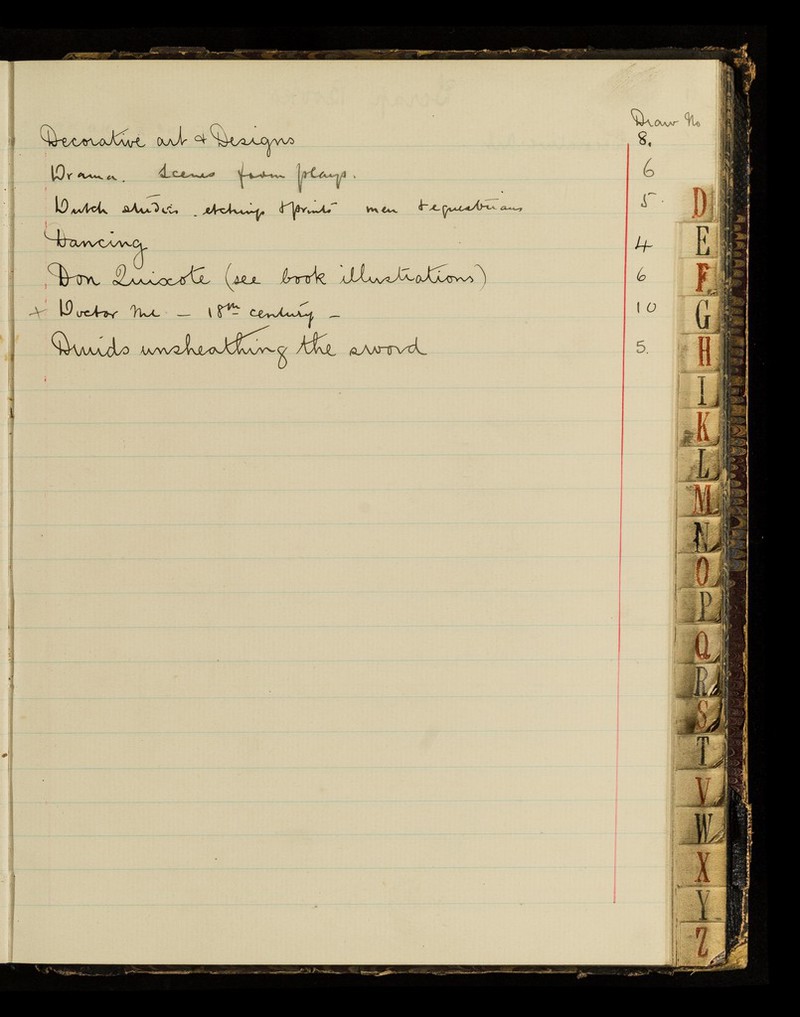 Draw No
Decorative art & Designs 8.
Drama. Scenes from plays. 6
Dutch studies. etchings & prints men & equestrians 5.
Dancing 4
Don Quixote (see book illustrations) 6
x Doctor The — 18th century — 10
Druids unsheathing the sword 5.
D
E
F
G
H
I
K
L
M
N
O
P
Q
R
S
T
V
W
X
Y
Z